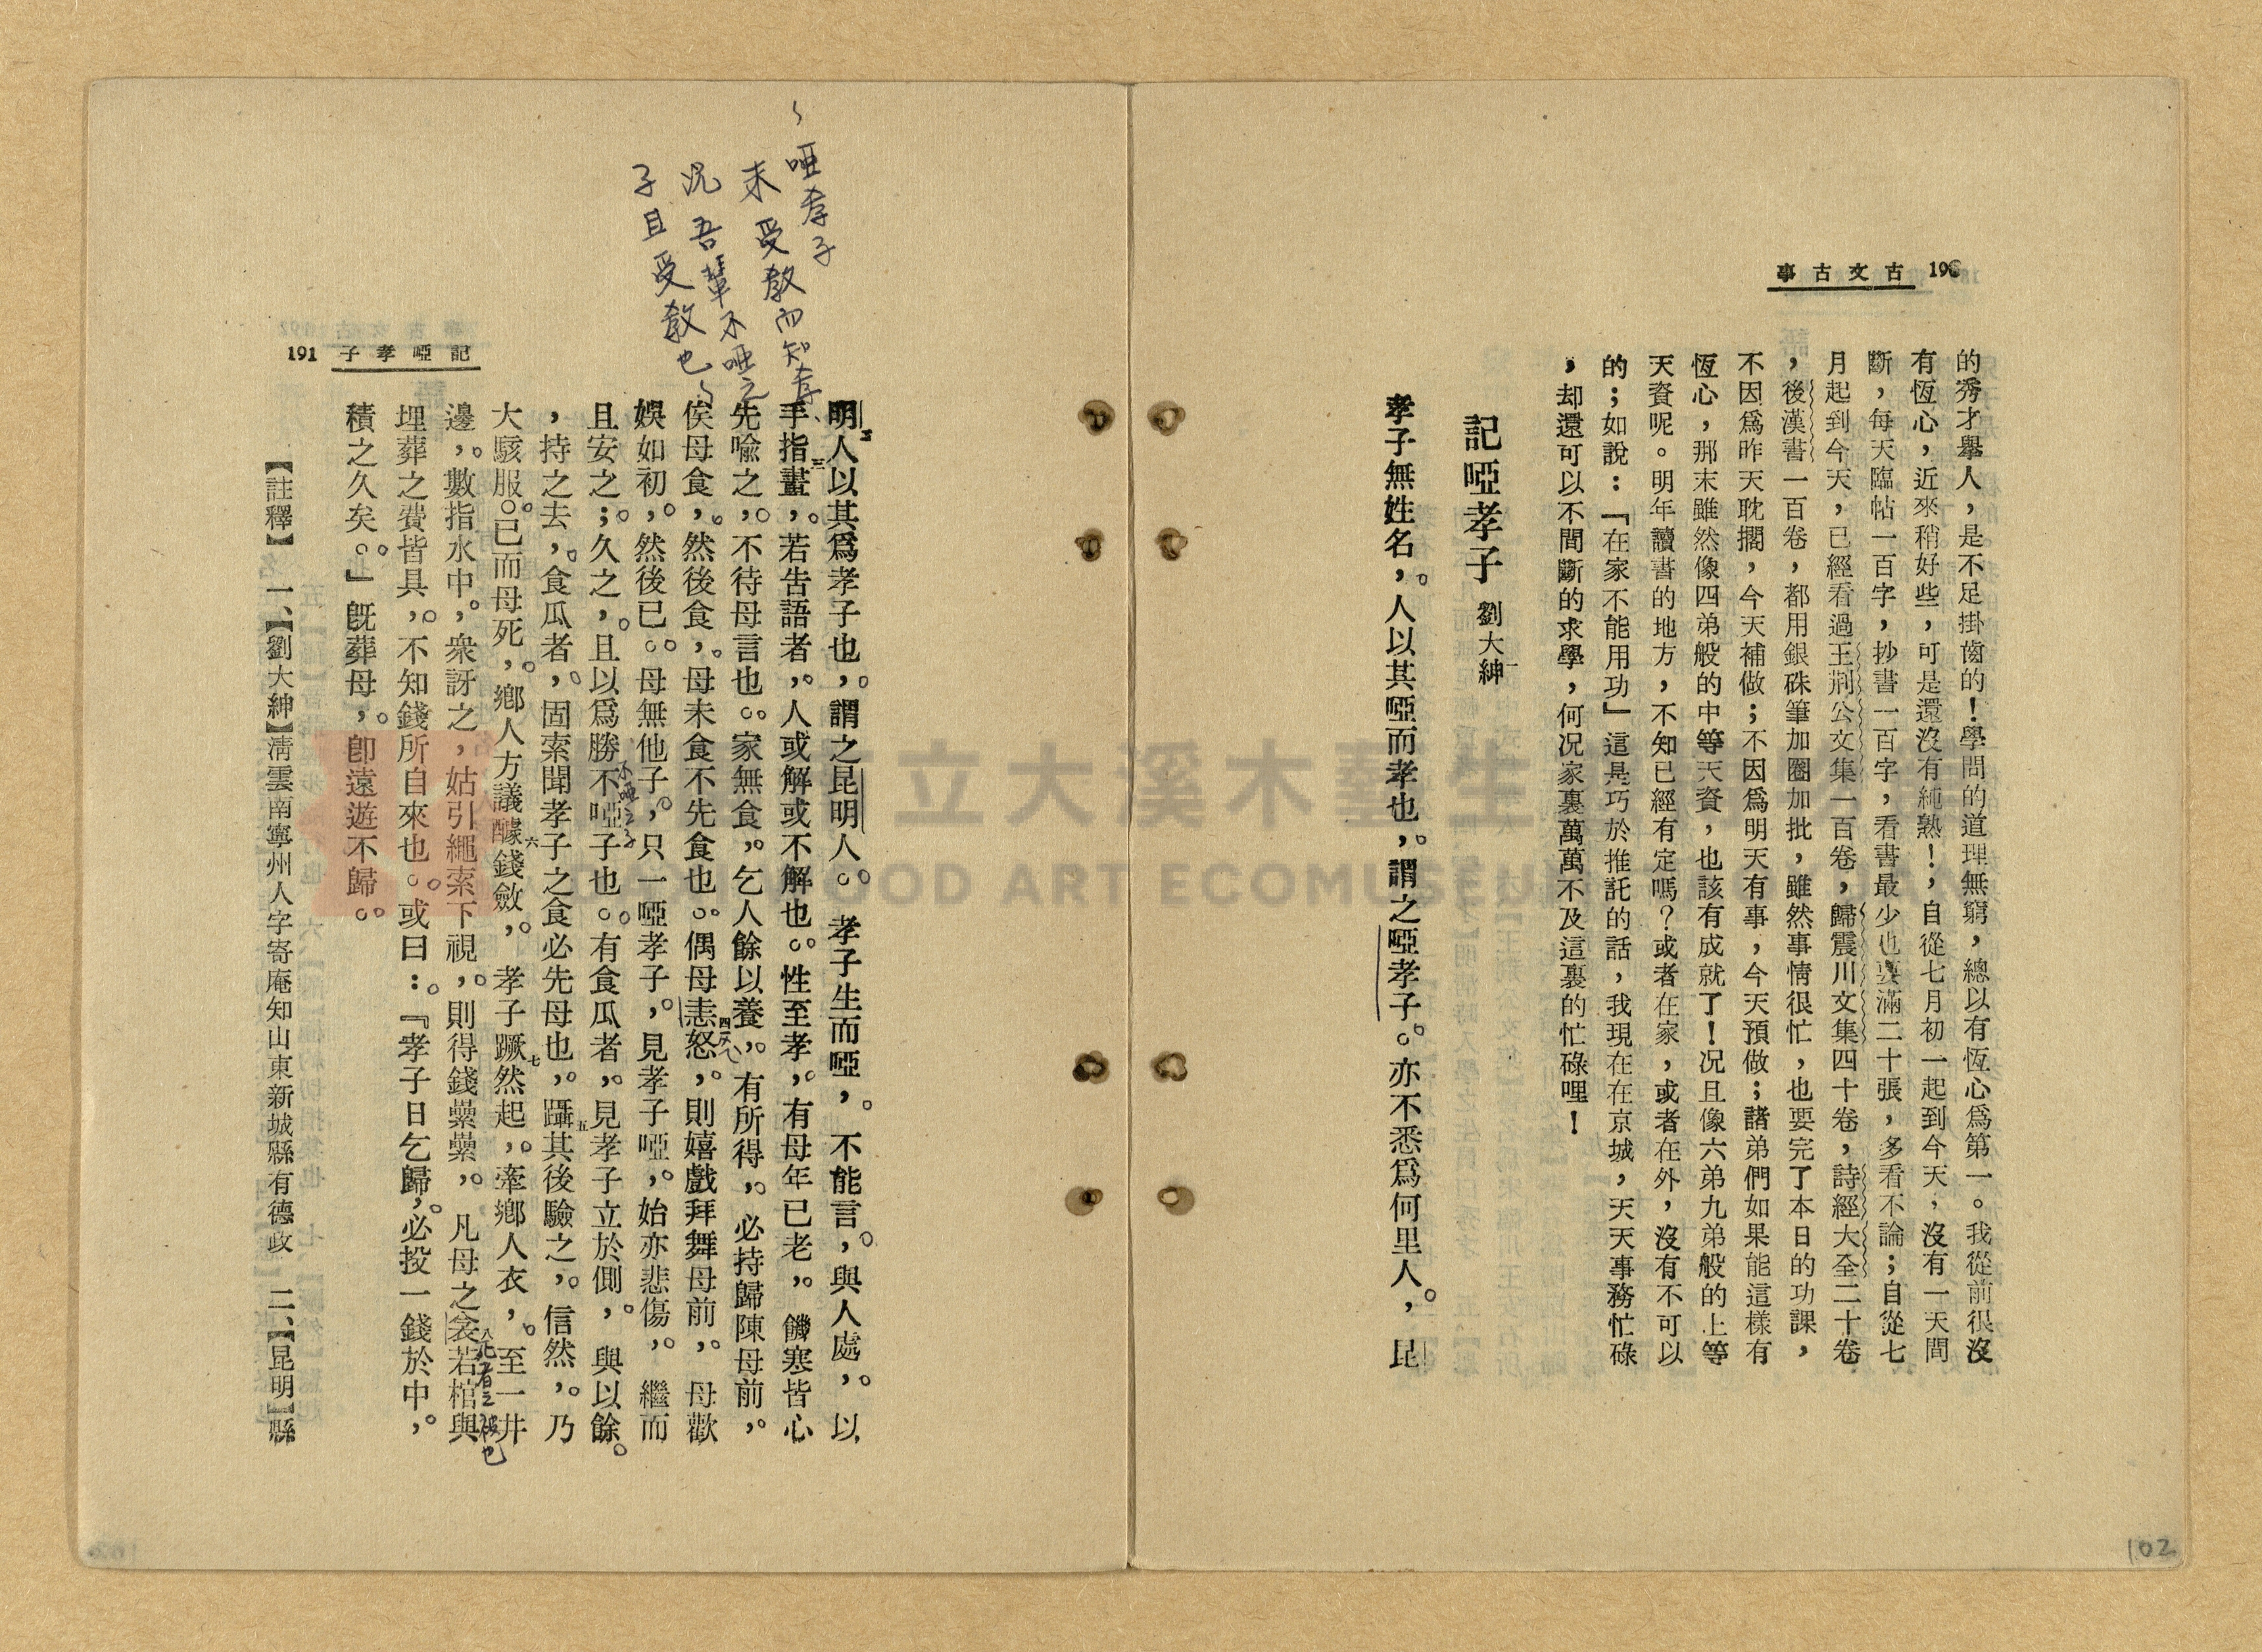 古文古事 190
的秀才舉人，是不足掛齒的！學問的道理無窮，總以有恆心為第一。我從前很沒
有恆心，近來稍好些，可是還沒有純熟！，自從七月初一起到今天，沒有一天間
斷，每天臨帖一百字，抄書一百字，看書最少也要滿二十張，多看不論；自從七
月起到今天，已經看過王荆公文集一百卷，歸震川文集四十卷，詩經大全二十卷
，後漢書一百卷，都用銀硃筆加圈加批，雖然事情很忙，也要完了本日的功課，
不因為昨天耽擱，今天補做；不因為明天有事，今天預做；諸弟們如果能這樣有
恆心，那末雖然像四弟般的中等天資，也該有成就了！况且像六弟九弟般的上等
天資呢。明年讀書的地方，不知已經有定嗎？或者在家，或者在外，沒有不可以
的；如說：「在家不能用功」這是巧於推託的話，我現在在京城，天天事務忙碌
，却還可以不間斷的求學，何况家裏萬萬不及這裏的忙碌哩！
記啞孝子 劉大紳一
孝子無姓名，人以其啞而孝也，謂之啞孝子。亦不悉爲何里人，昆
102
記啞孝子 191
啞孝子
未受教而知孝、
况吾輩不啞之
子且受教也
明二人以其爲孝子也，謂之昆明人。孝子生而啞，不能言，與人處，以
手指畫三，若告語者，人或解或不解也。性至孝，有母年已老，饑寒皆心
先喩之，不待母言也。家無食，乞人餘以養，有所得，必持歸陳母前，
俟母食，然後食，母未食不先食也。偶母恚四怒，則嬉戲拜舞母前，母歡
娛如初，然後已。母無他子，只一啞孝子，見孝子啞，始亦悲傷，繼而
且安之；久之，且以爲勝不啞子也。有食瓜者，見孝子立於側，與以餘
不啞之子
，持之去，食瓜者，固索聞孝子之食必先母也，躡五其後驗之，信然，乃
大駭服。已而母死，鄉人方議醵六錢斂，孝子蹶七然起，牽鄉人衣，至一井
邊，數指水中，衆訝之，姑引繩索下視，則得錢纍纍，凡母之衾若棺與
八死者之被也
埋葬之費皆具，不知錢所自來也。或曰：『孝子日乞歸，必投一錢於中，
積之久矣。』旣葬母，卽遠遊不歸。
【註釋】 一、【劉大紳】清雲南寧州人字寄庵知山東新城縣有德政 二、【昆明】縣
立大溪木藝生
OOD ART ECOMUSEU